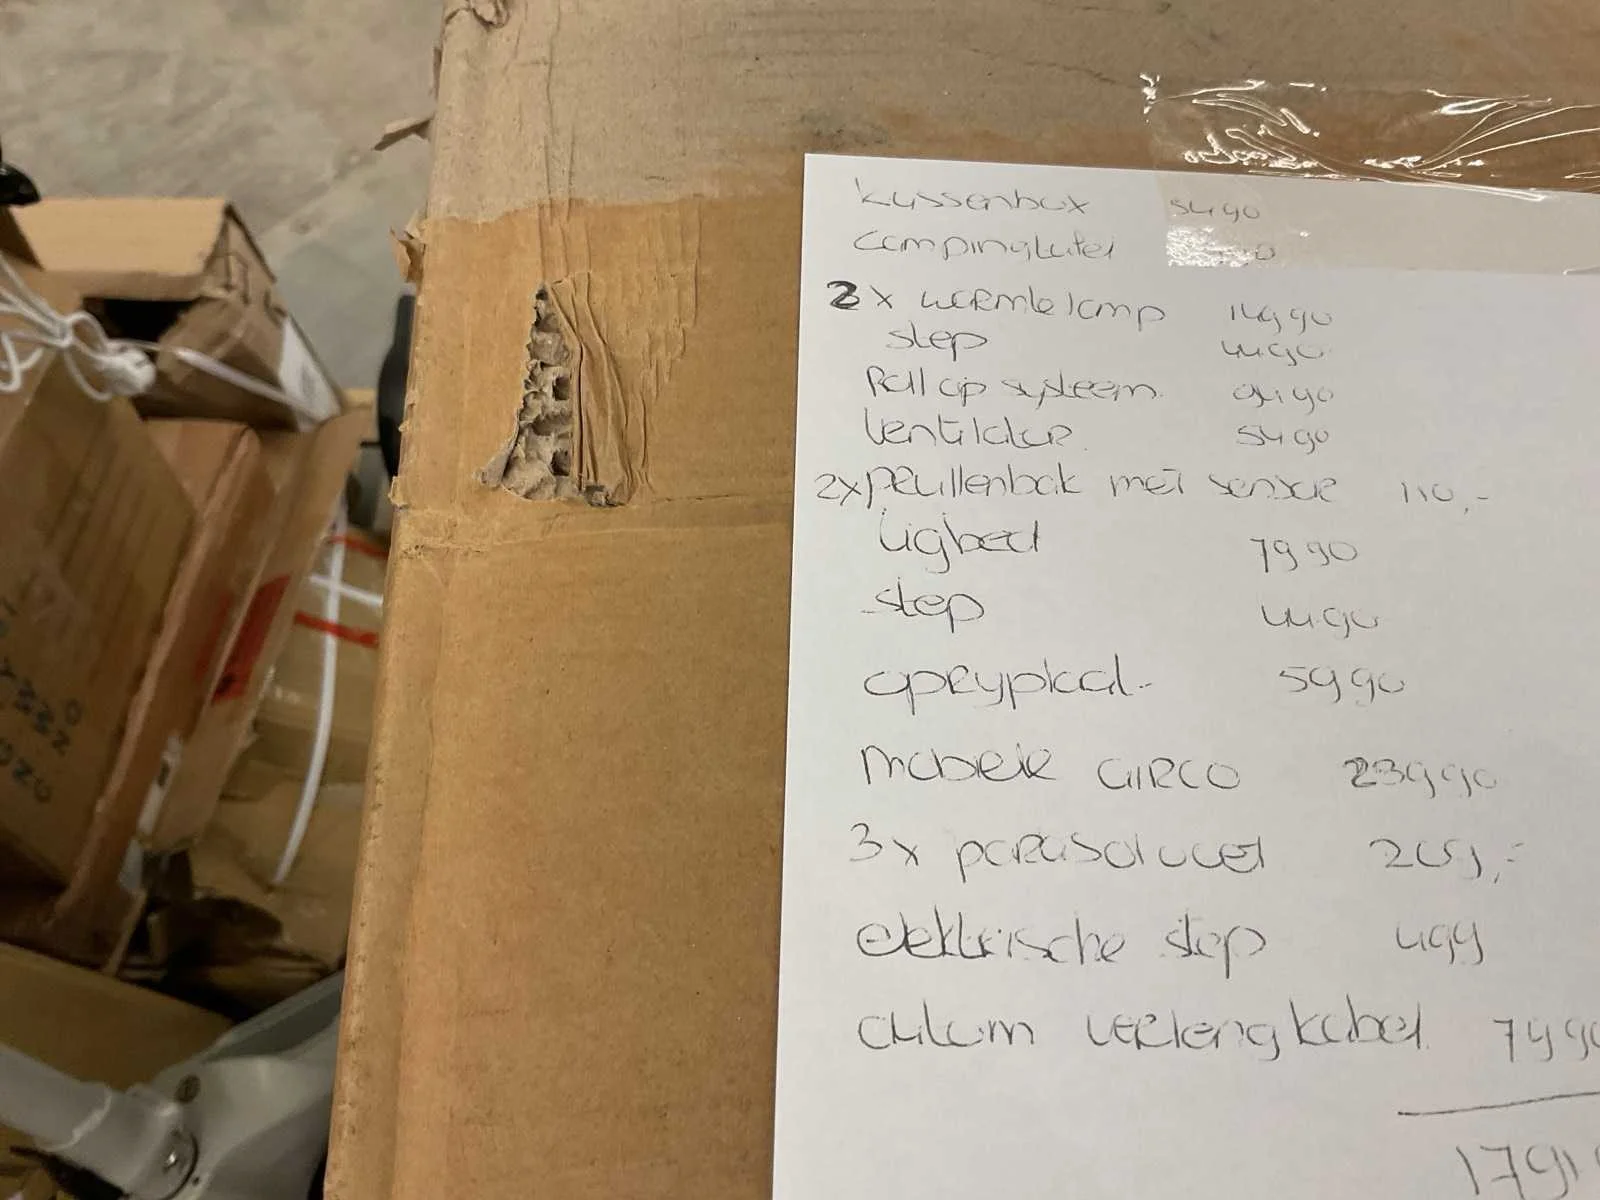 kussenbox 54 90
campingtafel
2x warmtelamp 149 90
step 44.90
Roll up systeem 94 90
ventilator 54 90
2x prullenbak met sensor 110,-
ligbed 79 90
step 44.90
oprypkaal. 59 90
Mobiele AIRCO 239 90
3x parasolvoet
elektrische step 499
alulom verlengkabel 79 90